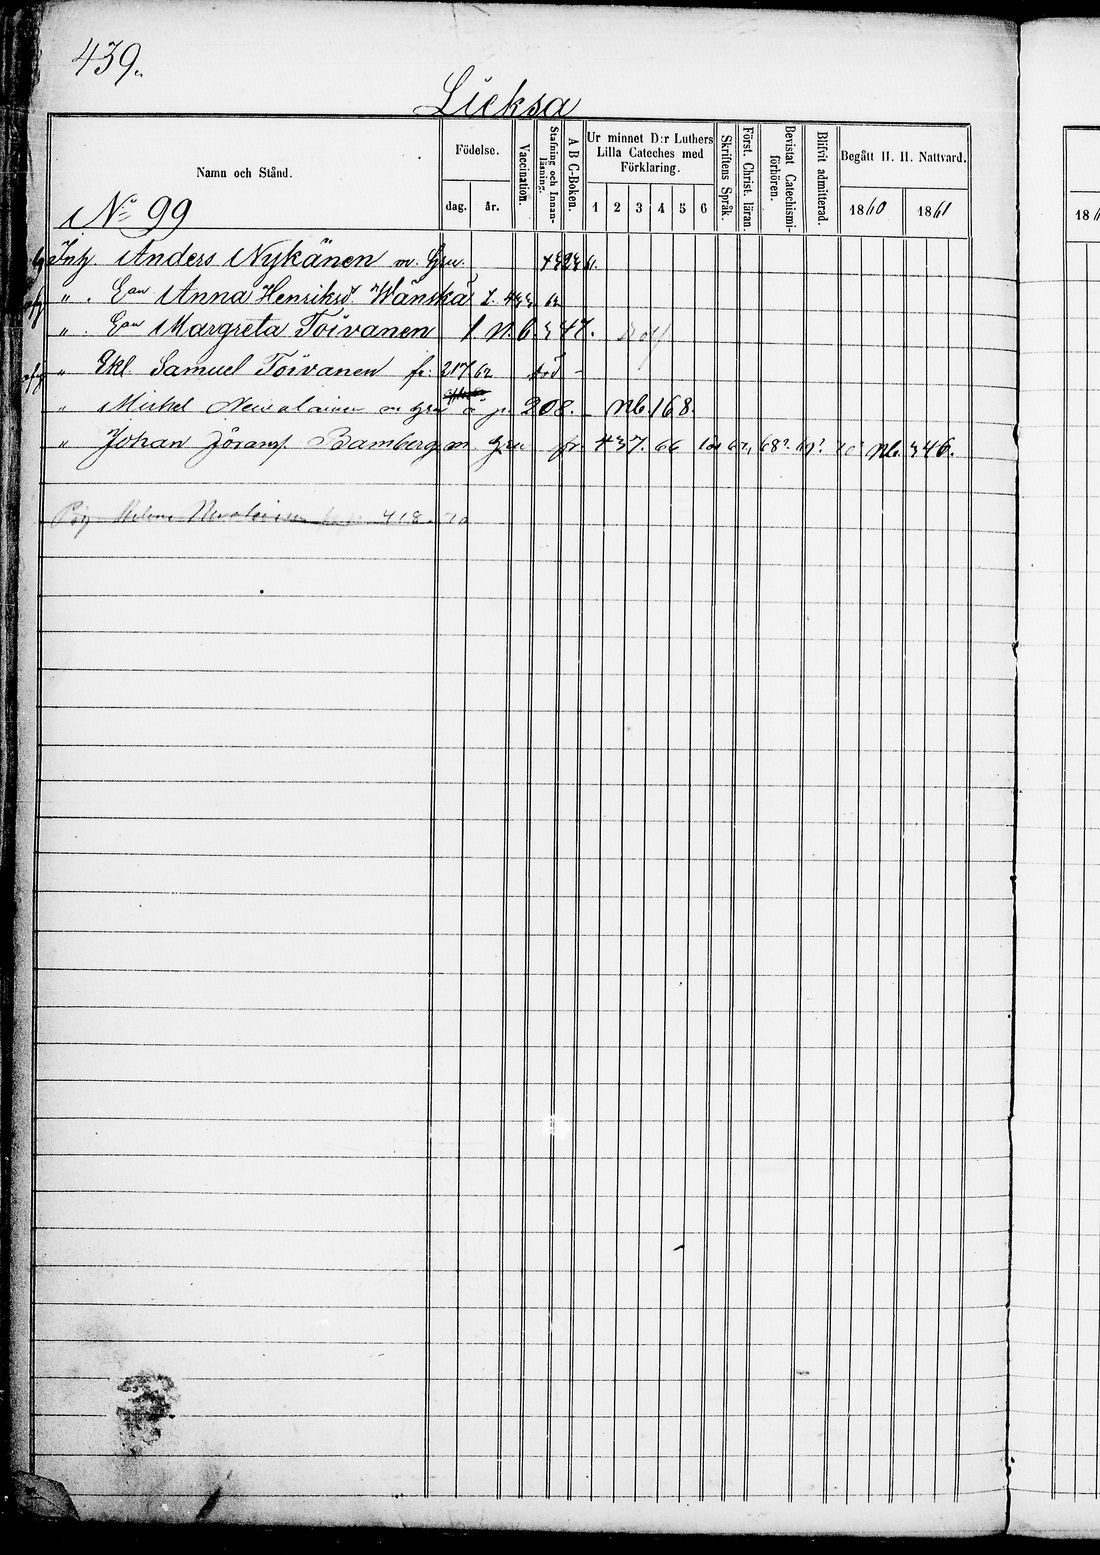 439.
Lieksa
Namn och Stånd.
Födelse.
dag.
år.
Vaccination.
Stafning och Innanläsning.
A B C-Boken.
Ur minnet D:r Luthers
Lilla Cateches med
Förklaring.
1 2 3 4 5 6
Skriftens Språk.
Först. Christ. läran.
Bevistat Catechismiförhören.
Blifvit admitterad.
Begått H. H. Nattvard.
1860
1861
186
No 99
Inh. Anders Nykänen m. hu. 61.
" . Ean Anna Henriksd. Wänskä 62
" . Ean Margreta Toivanen 1 N. 6. 347.
" Ekl. Samuel Toivanen fr. 217 62 död -
" Mickel m hu 208. - Nb. 168.
" Johan Göransf. Bamberg m hu fr. 437. 66 67, 68? 69? 70 Nb. 346.
418. 70